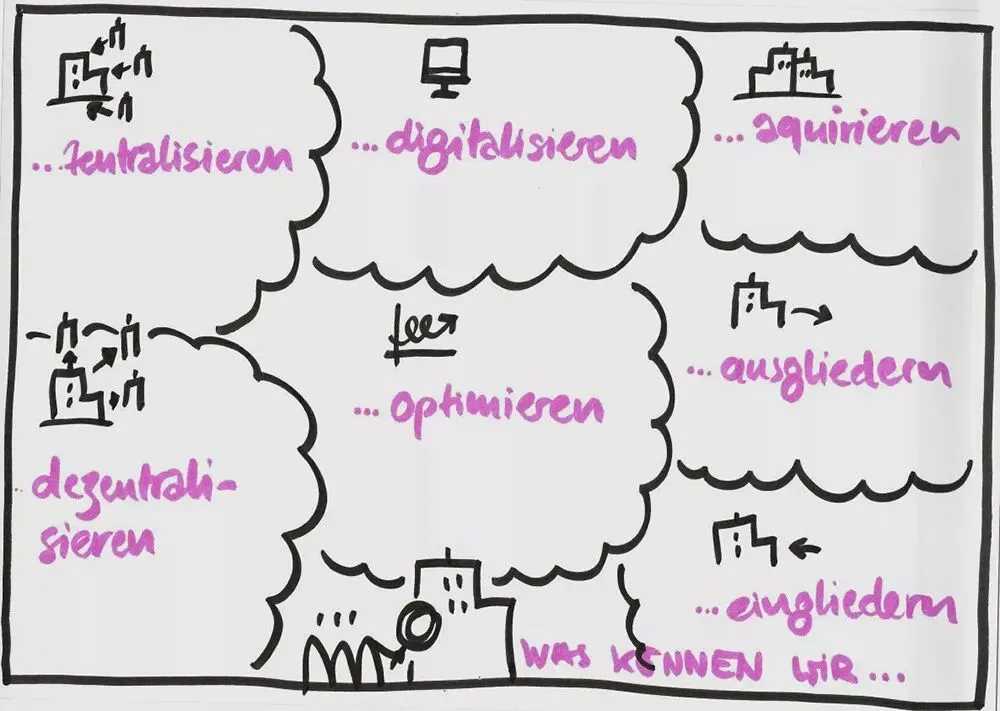 ...zentralisieren
...digitalisieren
...aquirieren
...ausgliedern
...optimieren
..dezentrali-
sieren
...eingliedern
WAS KÖNNEN WIR...